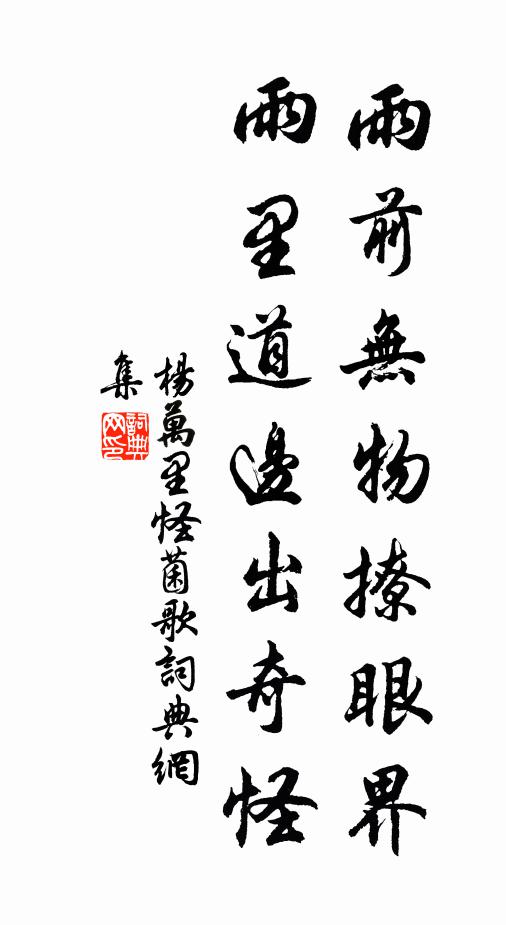 雨前無物撩眼界
雨里道邊出奇怪
楊萬里怪菌歌詞典網
集
詞典网印